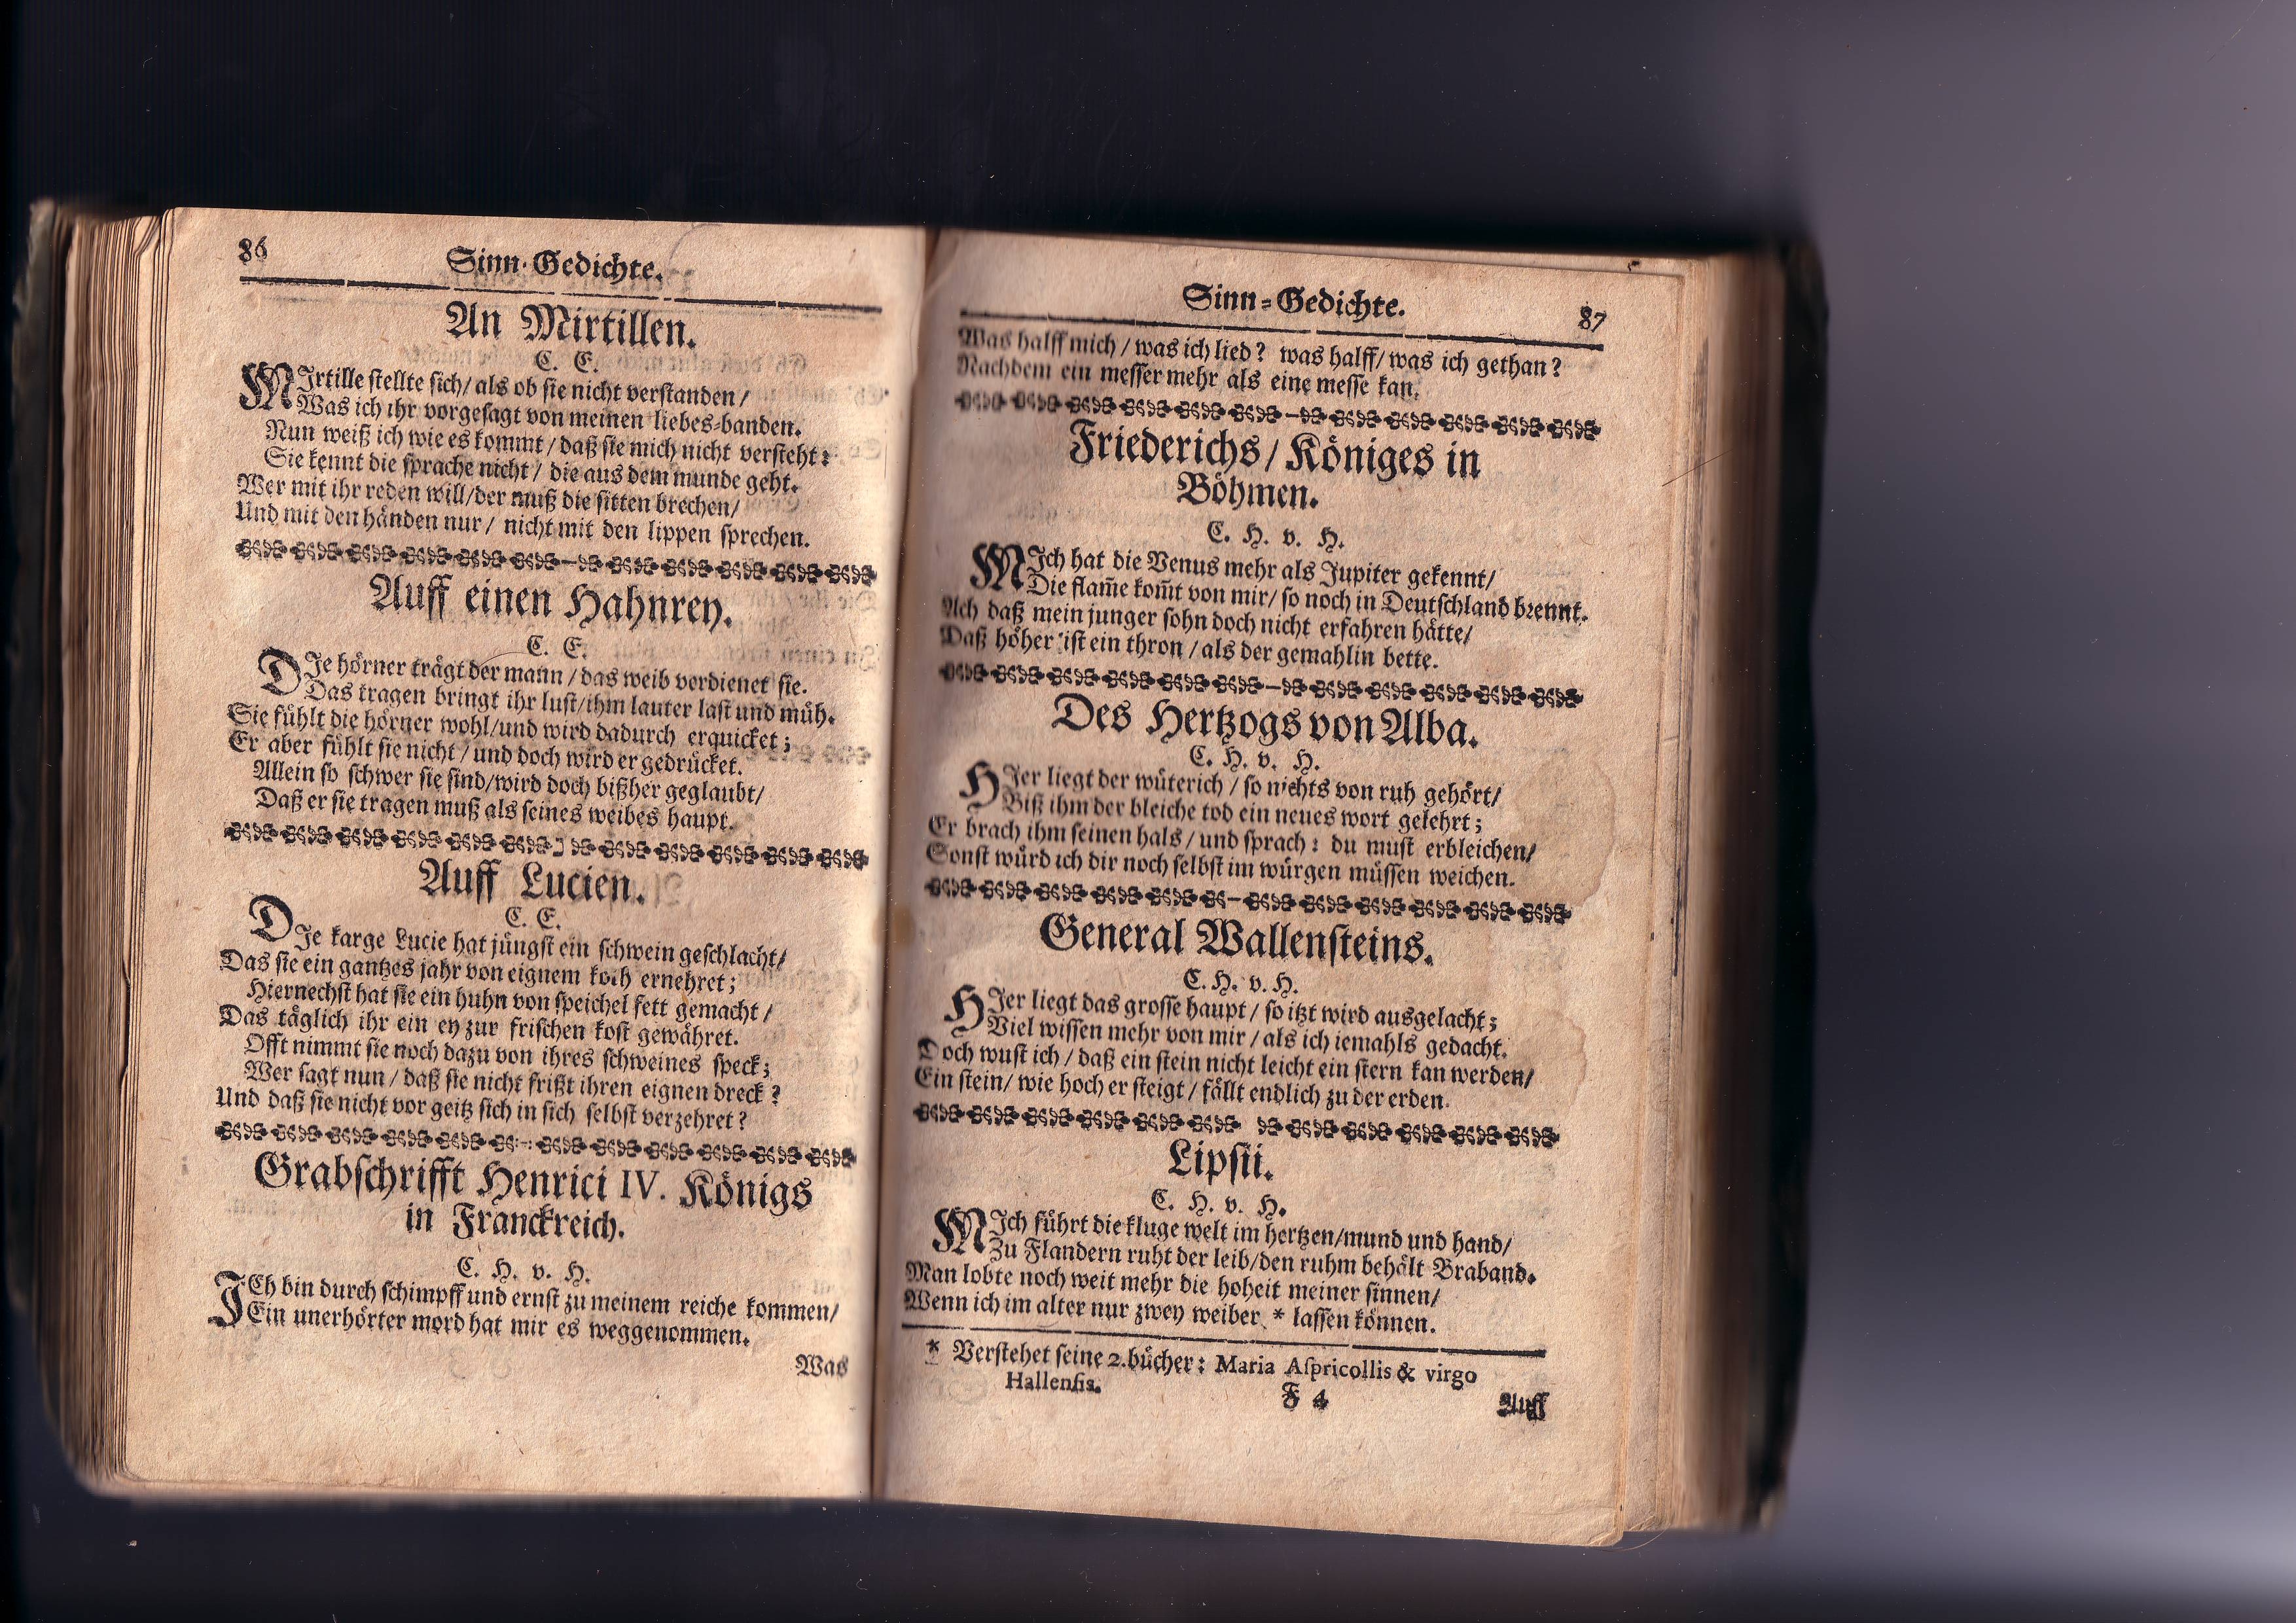 86
Sinn-Gedichte.
An Mirtillen.
C. E.
MIrtille stellte sich/ als ob sie nicht verstanden/
Was ich ihr vorgesagt von meinen liebes-banden.
Nun weiß ich wie es kommt/ daß sie mich nicht versteht:
Sie kennt die sprache nicht/ die aus dem munde geht.
Wer mit ihr reden will/der muß die sitten brechen/
Und mit den händen nur/ nicht mit den lippen sprechen.
Auff einen Hahnrey.
C. E.
DIe hörner trägt der mann/ das weib verdienet sie.
Das tragen bringt ihr lust/ihm lauter last und müh.
Sie fühlt die hörner wohl/und wird dadurch erquicket;
Er aber fühlt sie nicht/ und doch wird er gedrücket.
Allein so schwer sie sind/wird doch bißher geglaubt/
Daß er sie tragen muß als seines weibes haupt.
Auff Lucien.
C. E.
DIe karge Lucie hat jüngst ein schwein geschlacht/
Das sie ein gantzes jahr von eignem koth ernehret;
Hiernechst hat sie ein huhn von speichel fett gemacht/
Das täglich ihr ein ey zur frischen kost gewähret.
Offt nimmt sie noch dazu von ihres schweines speck;
Wer sagt nun/ daß sie nicht frißt ihren eignen dreck?
Und daß sie nicht vor geitz sich in sich selbst verzehret?
Grabschrifft Henrici IV. Königs
in Franckreich.
C. H. v. H.
ICh bin durch schimpff und ernst zu meinem reiche kommen/
Ein unerhörter mord hat mir es weggenommen.
Was
Sinn-Gedichte.
87
Was halff mich/ was ich lied? was halff/ was ich gethan?
Nachdem ein messer mehr als eine messe kan.
Friederichs/ Königes in
Böhmen.
C. H. v. H.
MIch hat die Venus mehr als Jupiter gekennt/
Die flam̃e kom̃t von mir/ so noch in Deutschland brennt.
Ach daß mein junger sohn doch nicht erfahren hätte/
Daß höher ist ein thron/ als der gemahlin bette.
Des Hertzogs von Alba.
C. H. v. H.
HIer liegt der wüterich/ so nichts von ruh gehört/
Biß ihm der bleiche tod ein neues wort gelehrt;
Er brach ihm seinen hals/ und sprach: du must erbleichen/
Sonst würd ich dir noch selbst im würgen müssen weichen.
General Wallensteins.
C. H. v. H.
HIer liegt das grosse haupt/ so itzt wird ausgelacht;
Viel wissen mehr von mir/ als ich iemahls gedacht.
Doch wust ich/ daß ein stein nicht leicht ein stern kan werden/
Ein stein/ wie hoch er steigt/ fällt endlich zu der erden.
Lipsii.
C. H. v. H.
MIch führt die kluge welt im hertzen/mund und hand/
Zu Flandern ruht der leib/den ruhm behält Braband.
Man lobte noch weit mehr die hoheit meiner sinnen/
Wenn ich im alter nur zwey weiber * lassen können.
* Verstehet seine 2. bücher: Maria Aspricollis & virgo
Hallensis.
F 4
Auff